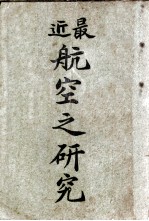 最近
航空之研究